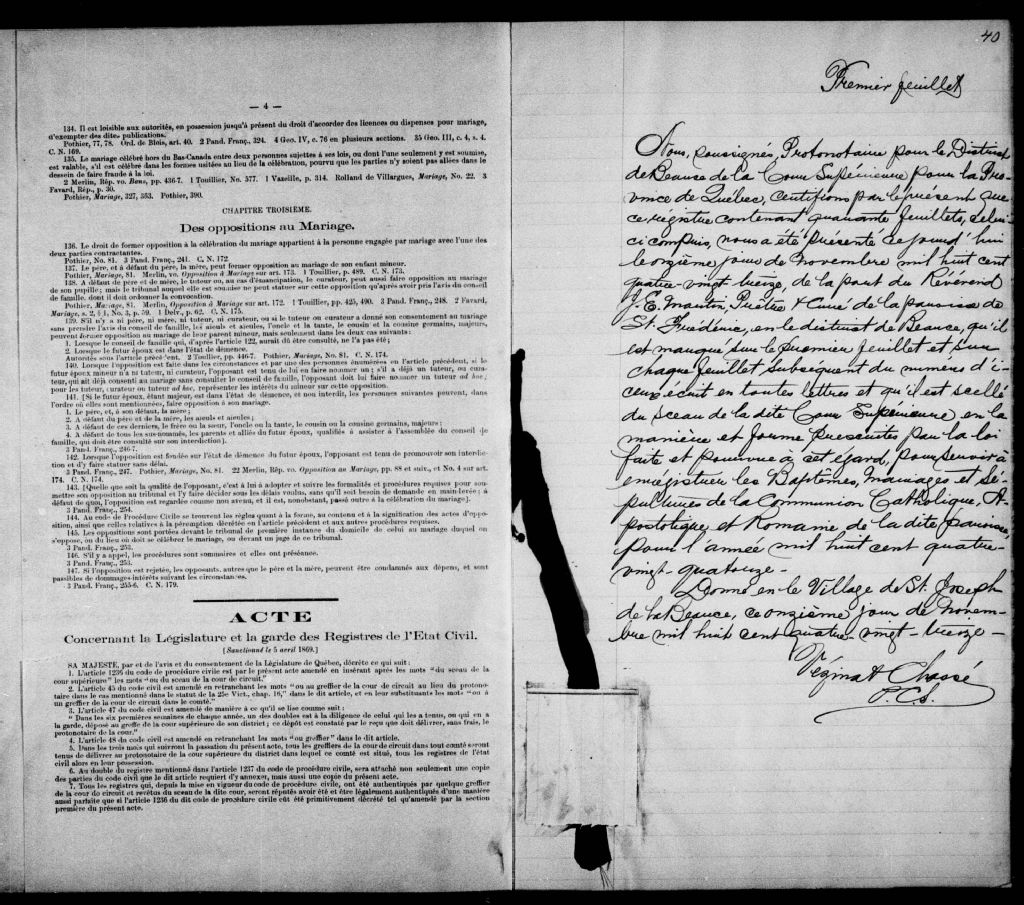 — 4 —
134. Il est loisible aux autorités, en possession jusqu'à présent du droit d'accorder des licences ou dispenses pour mariage,
d'exempter des dites publications.
Pothier, 77, 78. Ord. de Blois, art. 40. 2 Pand. Franç., 324. 4 Geo. IV, c. 76 en plusieurs sections. 35 Geo. III, c. 4, s. 4.
C. N. 169.
135. Le mariage célébré hors du Bas-Canada entre deux personnes sujettes à ses lois, ou dont l'une seulement y est soumise,
est valable, s'il est célébré dans les formes usitées au lieu de la célébration, pourvu que les parties n'y soient pas allées dans le
dessein de faire fraude à la loi.
2 Merlin, Rép. vo. Bans, pp. 436-7. 1 Touillier, No. 577. 1 Vazeille, p. 314. Rolland de Villargues, Mariage, No. 22. 3
Favard, Rép., p. 30.
Pothier, Mariage, 327, 353. Pothier, 390.
CHAPITRE TROISIÈME.
Des oppositions au Mariage.
136. Le droit de former opposition à la célébration du mariage appartient à la personne engagée par mariage avec l'une des
deux parties contractantes.
Pothier, No. 81. 3 Pand. Franç., 241. C. N. 172.
137. Le père, et à défaut du père, la mère, peut former opposition au mariage de son enfant mineur.
Pothier, Mariage, 81. Merlin, vo. Opposition à Mariage sur art. 173. 1 Touillier, p. 489. C. N. 173.
138. A défaut de père et de mère, le tuteur ou, au cas d'émancipation, le curateur, peut aussi faire opposition au mariage
de son pupille; mais le tribunal auquel elle est soumise ne peut statuer sur cette opposition qu'après avoir pris l'avis du conseil
de famille, dont il doit ordonner la convocation.
Pothier, Mariage, 81. Merlin, Opposition à Mariage sur art. 172. 1 Touillier, pp. 425, 490. 3 Pand. Franç., 248. 2 Favard,
Mariage, s. 2, § 1, No. 3, p. 59. 1 Delv., p. 62. C. N. 175.
139. S'il n'y a ni père, ni mère, ni tuteur, ni curateur, ou si le tuteur ou curateur a donné son consentement au mariage
sans prendre l'avis du conseil de famille, les aïeuls et aïeules, l'oncle et la tante, le cousin et la cousine germains, majeurs,
peuvent former opposition au mariage de leur parent mineur, mais seulement dans les deux cas suivants:
1. Lorsque le conseil de famille qui, d'après l'article 122, aurait dû être consulté, ne l'a pas été;
2. Lorsque le futur époux est dans l'état de démence.
Autorités sous l'article précédent. 2 Touillier, pp. 446-7. Pothier, Mariage, No. 81. C. N. 174.
140. Lorsque l'opposition est faite dans les circonstances et par une des personnes énumérées en l'article précédent, si le
futur époux mineur n'a ni tuteur, ni curateur, l'opposant est tenu de lui en faire nommer un; s'il a déjà un tuteur, ou cura-
teur, qui ait déjà consenti au mariage sans consulter le conseil de famille, l'opposant doit lui faire nommer un tuteur ad hoc;
pour les tuteur, curateur ou tuteur ad hoc, représenter les intérêts du mineur sur cette opposition.
141. [Si le futur époux, étant majeur, est dans l'état de démence, et non interdit, les personnes suivantes peuvent, dans
l'ordre où elles sont mentionnées, faire opposition à son mariage.
1. Le père, et, à son défaut, la mère;
2. A défaut du père et de la mère, les aïeuls et aïeules;
3. A défaut de ces derniers, le frère ou la sœur, l'oncle ou la tante, le cousin ou la cousine germains, majeurs;
4. A défaut de tous les sus-nommés, les parents et alliés du futur époux, qualifiés à assister à l'assemblée du conseil de
famille, qui doit être consulté sur son interdiction].
3 Pand. Franç., 246-7.
142. Lorsque l'opposition est fondée sur l'état de démence du futur époux, l'opposant est tenu de promouvoir son interdic-
tion et d'y faire statuer sans délai.
3 Pand. Franç., 247. Pothier, Mariage, No. 81. 22 Merlin, Rép. vo. Opposition au Mariage, pp. 88 et suiv., et No. 4 sur art.
174. C. N. 174.
143. [Quelle que soit la qualité de l'opposant, c'est à lui à adopter et suivre les formalités et procédures requises pour sou-
mettre son opposition au tribunal et l'y faire décider sous les délais voulus, sans qu'il soit besoin de demande en main-levée; à
défaut de quoi, l'opposition est regardée comme non avenu, et il est, nonobstant, passé outre à la célébration du mariage].
3 Pand. Franç., 254.
144. Au code de Procédure Civile se trouvent les règles quant à la forme, au contenu et à la signification des actes d'oppo-
sition, ainsi que celles relatives à la péremption décrétée en l'article précédent et aux autres procédures requises.
145. Les oppositions sont portées devant le tribunal de première instance du domicile de celui au mariage duquel on
s'oppose, ou du lieu où doit se célébrer le mariage, ou devant un juge de ce tribunal.
3 Pand. Franç., 253.
146. S'il y a appel, les procédures sont sommaires et elles ont préséance.
3 Pand. Franç., 253.
147. Si l'opposition est rejetée, les opposants, autres que le père et la mère, peuvent être condamnés aux dépens, et sont
passibles de dommages-intérêts suivant les circonstances.
3 Pand. Franç., 255-6. C. N. 179.
ACTE
Concernant la Législature et la garde des Registres de l'Etat Civil.
[Sanctionné le 5 avril 1869.]
SA MAJESTÉ, par et de l'avis et du consentement de la Législature de Québec, décrète ce qui suit:
1. L'article 1236 du code de procédure civile est par le présent acte amendé en insérant après les mots "du sceau de la
cour supérieure" les mots "ou du sceau de la cour de circuit."
2. L'article 45 du code civil est amendé en retranchant les mots "ou au greffier de la cour de circuit au lieu du protono-
taire dans le cas mentionné dans le statut de la 25e Vict., chap. 16," dans le dit article, et en leur substituant les mots "ou à
un greffier de la cour de circuit dans le comté."
3. L'article 47 du code civil est amendé de manière à ce qu'il se lise comme suit:
"Dans les six premières semaines de chaque année, un des doubles est à la diligence de celui qui les a tenus, ou qui en a
la garde, déposé au greffe de la cour supérieure de son district; ce dépôt est constaté par le reçu que doit délivrer, sans frais, le
protonotaire de la cour."
4. L'article 48 du code civil est amendé en retranchant les mots "ou greffier" dans le dit article.
5. Dans les trois mois qui suivront la passation du présent acte, tous les greffiers de la cour de circuit dans tout comté seront
tenus de délivrer au protonotaire de la cour supérieure du district dans lequel ce comté est situé, tous les registres de l'état
civil alors en leur possession.
6. Au double du registre mentionné dans l'article 1237 du code de procédure civile, sera attaché non seulement une copie
des parties du code civil que le dit article requiert d'y annexer, mais aussi une copie du présent acte.
7. Tous les registres qui, depuis la mise en vigueur du code de procédure civile, ont été authentiqués par quelque greffier
de la cour de circuit et revêtus du sceau de la dite cour, seront réputés avoir été et être légalement authentiqués d'une manière
aussi parfaite que si l'article 1236 du dit code de procédure civile eût été primitivement décrété tel qu'amendé par la section
première du présent acte.
40
Premier feuillet
Nous, soussignés, Protonotaire pour le District
de Beauce de la Cour Supérieure pour la Pro-
vince de Québec, certifions par le présent que
ce registre contenant quarante feuillets, celui-
ci compris, nous a été présenté ce jourd'hui
le onzième jour de Novembre mil huit cent
quatre-vingt-treize, de la part du Révérend
J. E. Martin, Prêtre & Curé de la paroisse de
St. Frédéric, en le district de Beauce, qu'il
est marqué sur le premier feuillet et sur
chaque feuillet subséquent du numéro d'i-
ceux écrit en toutes lettres et qu'il est scellé
du sceau de la dite Cour Supérieure, en la
manière et forme prescrites par la loi
faite et pourvue à cet égard, pour servir à
enregistrer les Baptêmes, Mariages et Sé-
pultures de la Communion Catholique, A-
postolique et Romaine de la dite paroisse
pour l'année mil huit cent quatre-
vingt-quatorze -
Donné en le Village de St. Joseph
de la Beauce, ce onzième jour de Novem-
bre mil huit cent quatre-vingt-treize -
Vézina & Chassé
P. C. S.